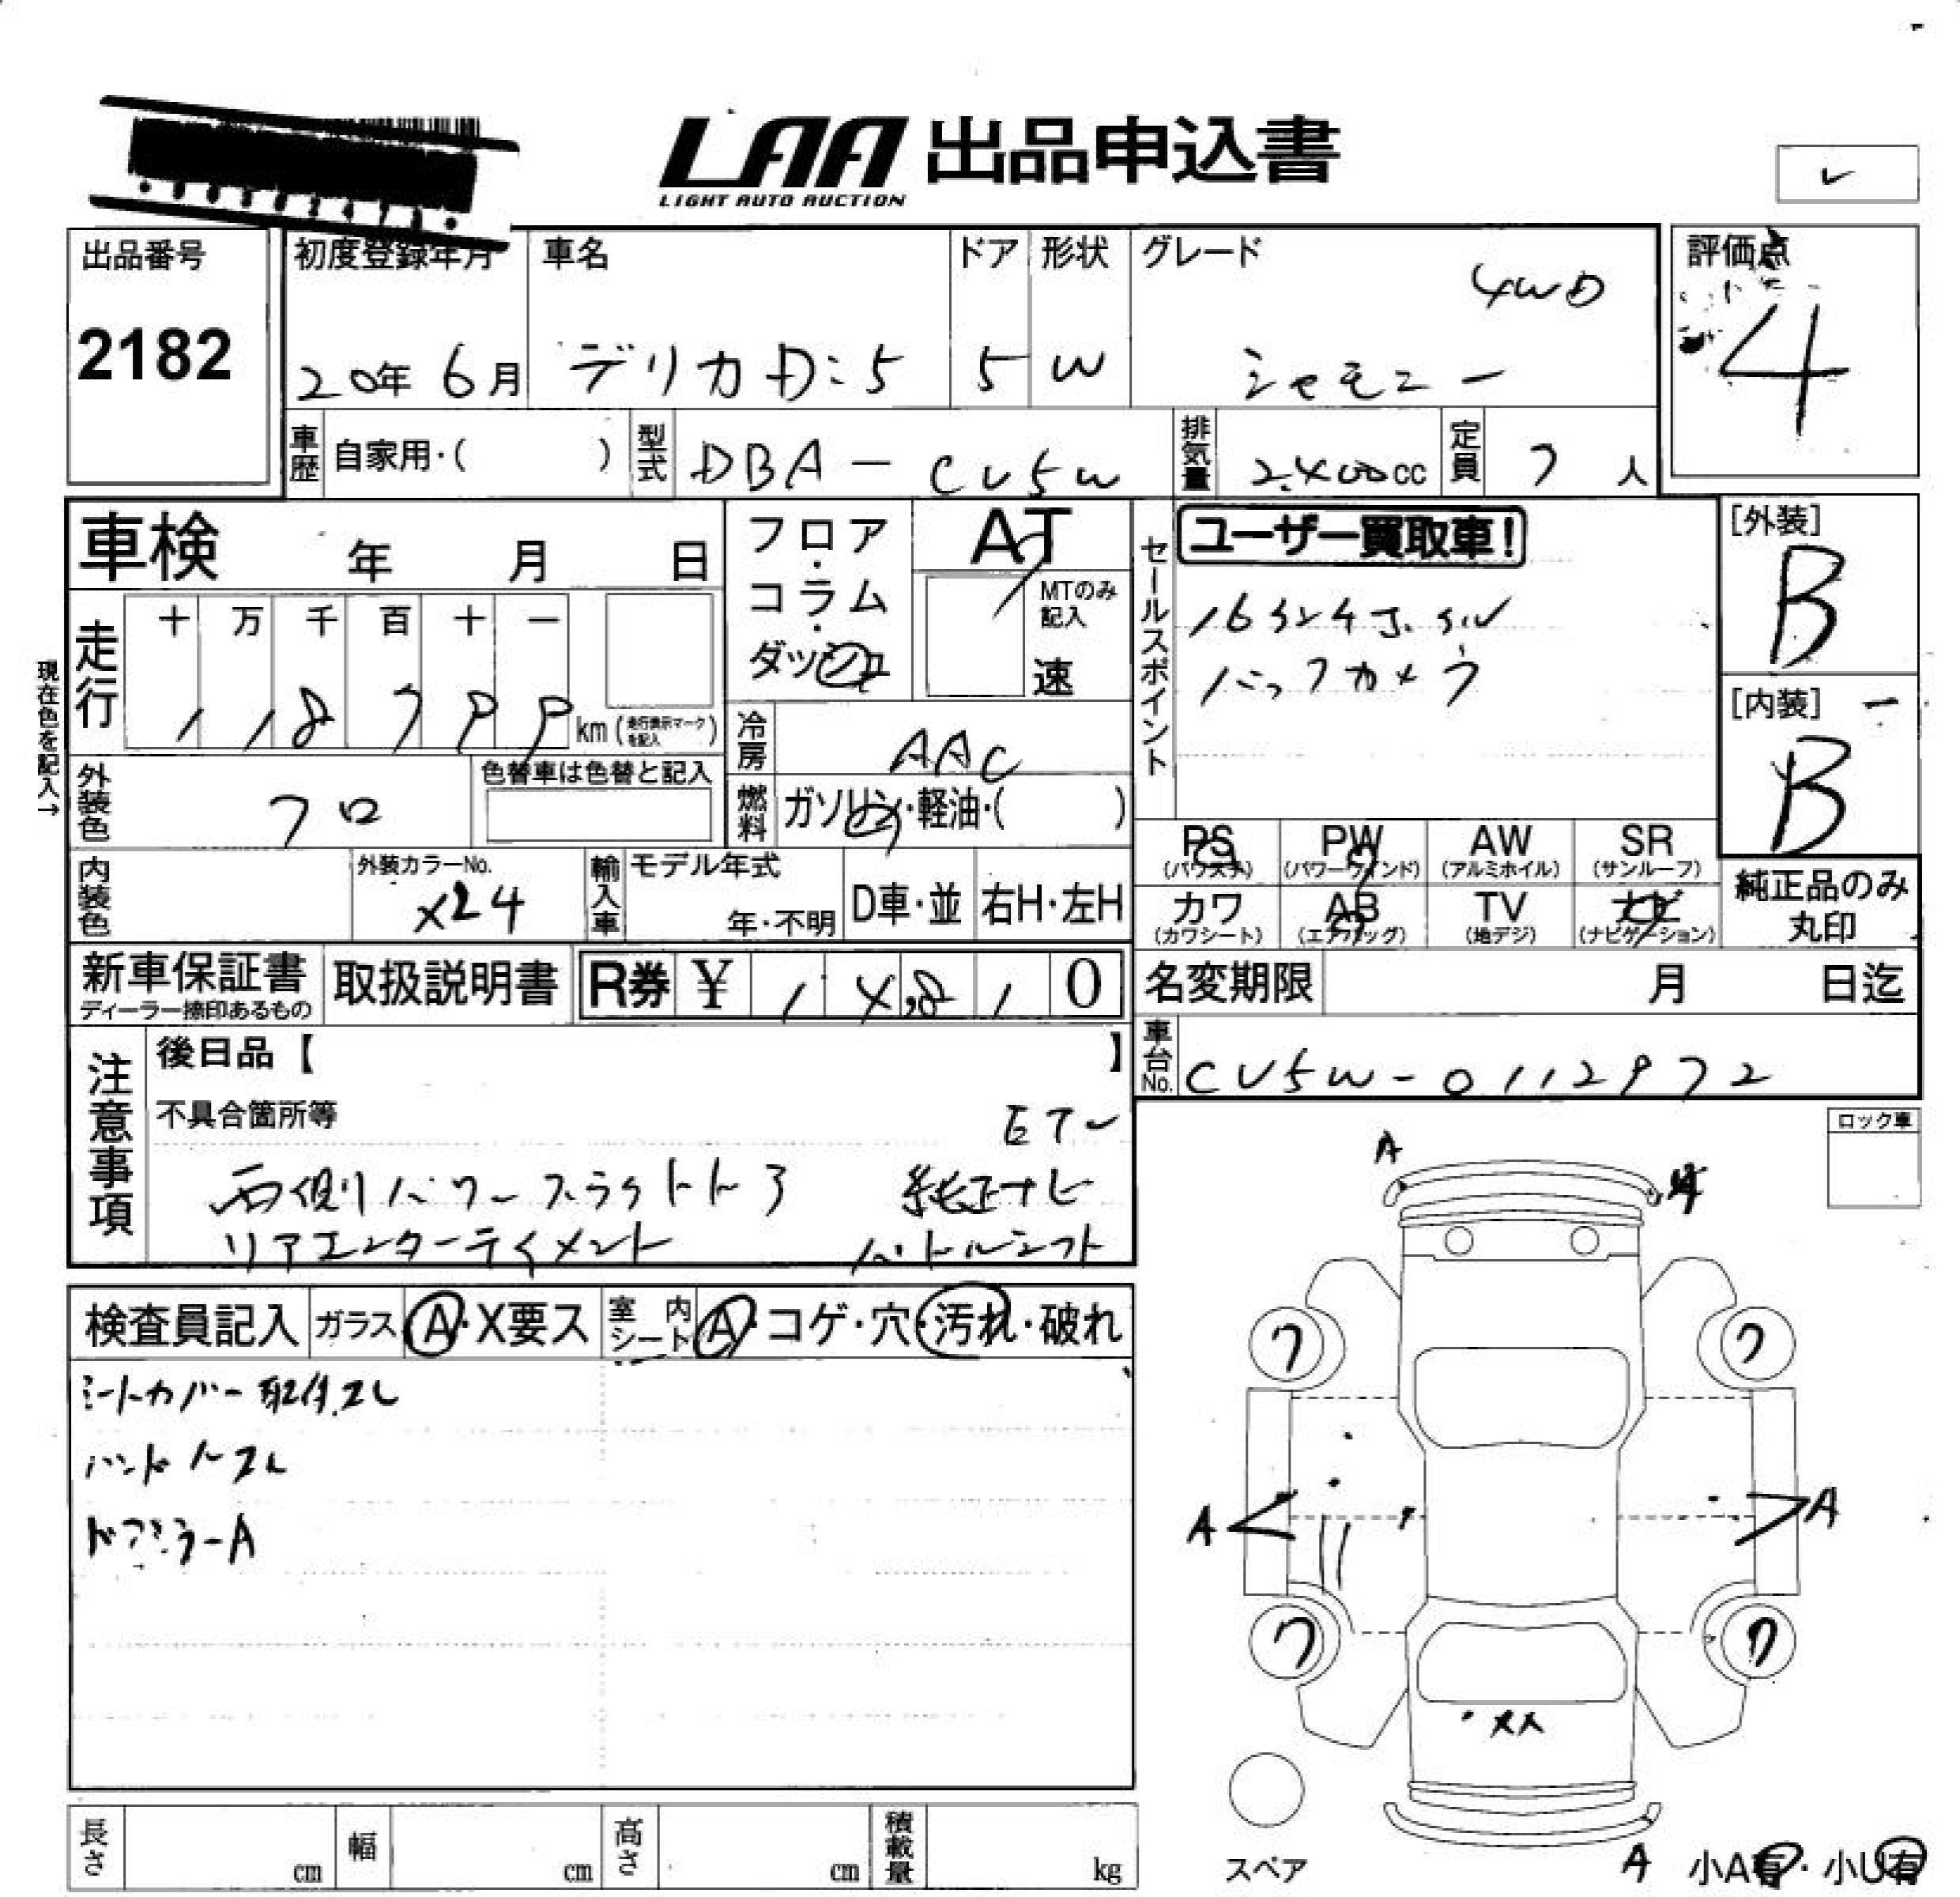 LAA 出品申込書
LIGHT AUTO AUCTION
出品番号
2182
初度登録年月
20年 6月
車名
デリカD:5
ドア
5
形状
W
グレード
4WD
シャモニー
評価点
4
車歴 自家用・( )
型式 DBA-CV5W
排気量 2.400cc
定員 7人
車検 年 月 日
フロア・コラム・ダッシュ
AT
MTのみ記入
速
セールスポイント
ユーザー買取車!
バックカメラ
[外装]
B
[内装]
B
現在色を記入→
走行
十 万 千 百 十 一
118799 km (走行表示マークを記入)
冷房 AAC
外装色 クロ
色替車は色替と記入
燃料 ガソリン・軽油・( )
PS (パワステ)
PW (パワーウインド)
AW (アルミホイル)
SR (サンルーフ)
カワ (カワシート)
AB (エアバッグ)
TV (地デジ)
ナビ (ナビゲーション)
純正品のみ丸印
内装色
外装カラーNo.
X24
輸入車
モデル年式
年・不明
D車・並
右H・左H
新車保証書
ディーラー捺印あるもの
取扱説明書
R券 ¥ 14,810
名変期限 月 日迄
車台No. CV5W-0112972
注意事項
後日品【 】
不具合箇所等
ETC
両側パワースライドドア 純正ナビ
リアエンターテイメント パドルシフト
ロック車
検査員記入 ガラス A・X要ス
室内シート A・コゲ・穴・汚れ・破れ
シートカバー取付スレ
ハンドルスレ
ドアミラーA
A
ワ ワ
A A
ワ ワ
スペア
A
小A有・小U有
長さ cm
幅 cm
高さ cm
積載量 kg